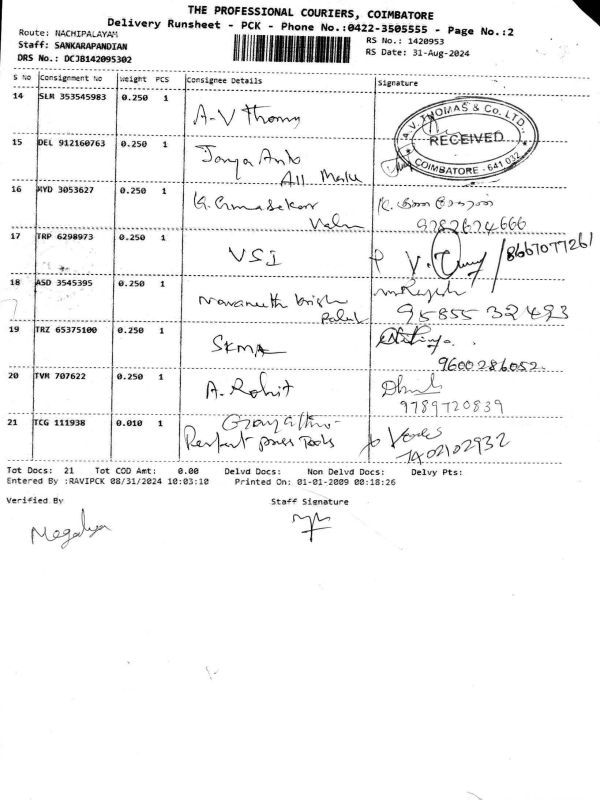 THE PROFESSIONAL COURIERS, COIMBATORE
Delivery Runsheet - PCK - Phone No.:0422-3505555 - Page No.:2
Route: NACHIPALAYAM
RS No.: 1420953
Staff: SANKARAPANDIAN
RS Date: 31-Aug-2024
DRS No.: DCJB142095302
S No Consignment No Weight PCS Consignee Details Signature
14 SLM 353545983 0.250 1 A-V Thomas
A.V. THOMAS & CO. LTD.,
RECEIVED
COIMBATORE - 641 032
15 DEL 912160763 0.250 1
16 MYD 3053627 0.250 1 K.
9282674666
17 TRP 6298973 0.250 1 VSI V. / 8667077261
18 ASD 3545395 0.250 1 Navaneeth Krish
95855 32493
19 TRZ 65375100 0.250 1 SKMA
9600286052
20 TVM 707622 0.250 1 A. Rohit
9789720839
21 TCG 111938 0.010 1
Perfect Power Tools
7402102932
Tot Docs: 21 Tot COD Amt: 0.00 Delvd Docs: Non Delvd Docs: Delvy Pts:
Entered By :RAVIPCK 08/31/2024 10:03:10 Printed On: 01-01-2009 00:18:26
Verified By Staff Signature
Megalya